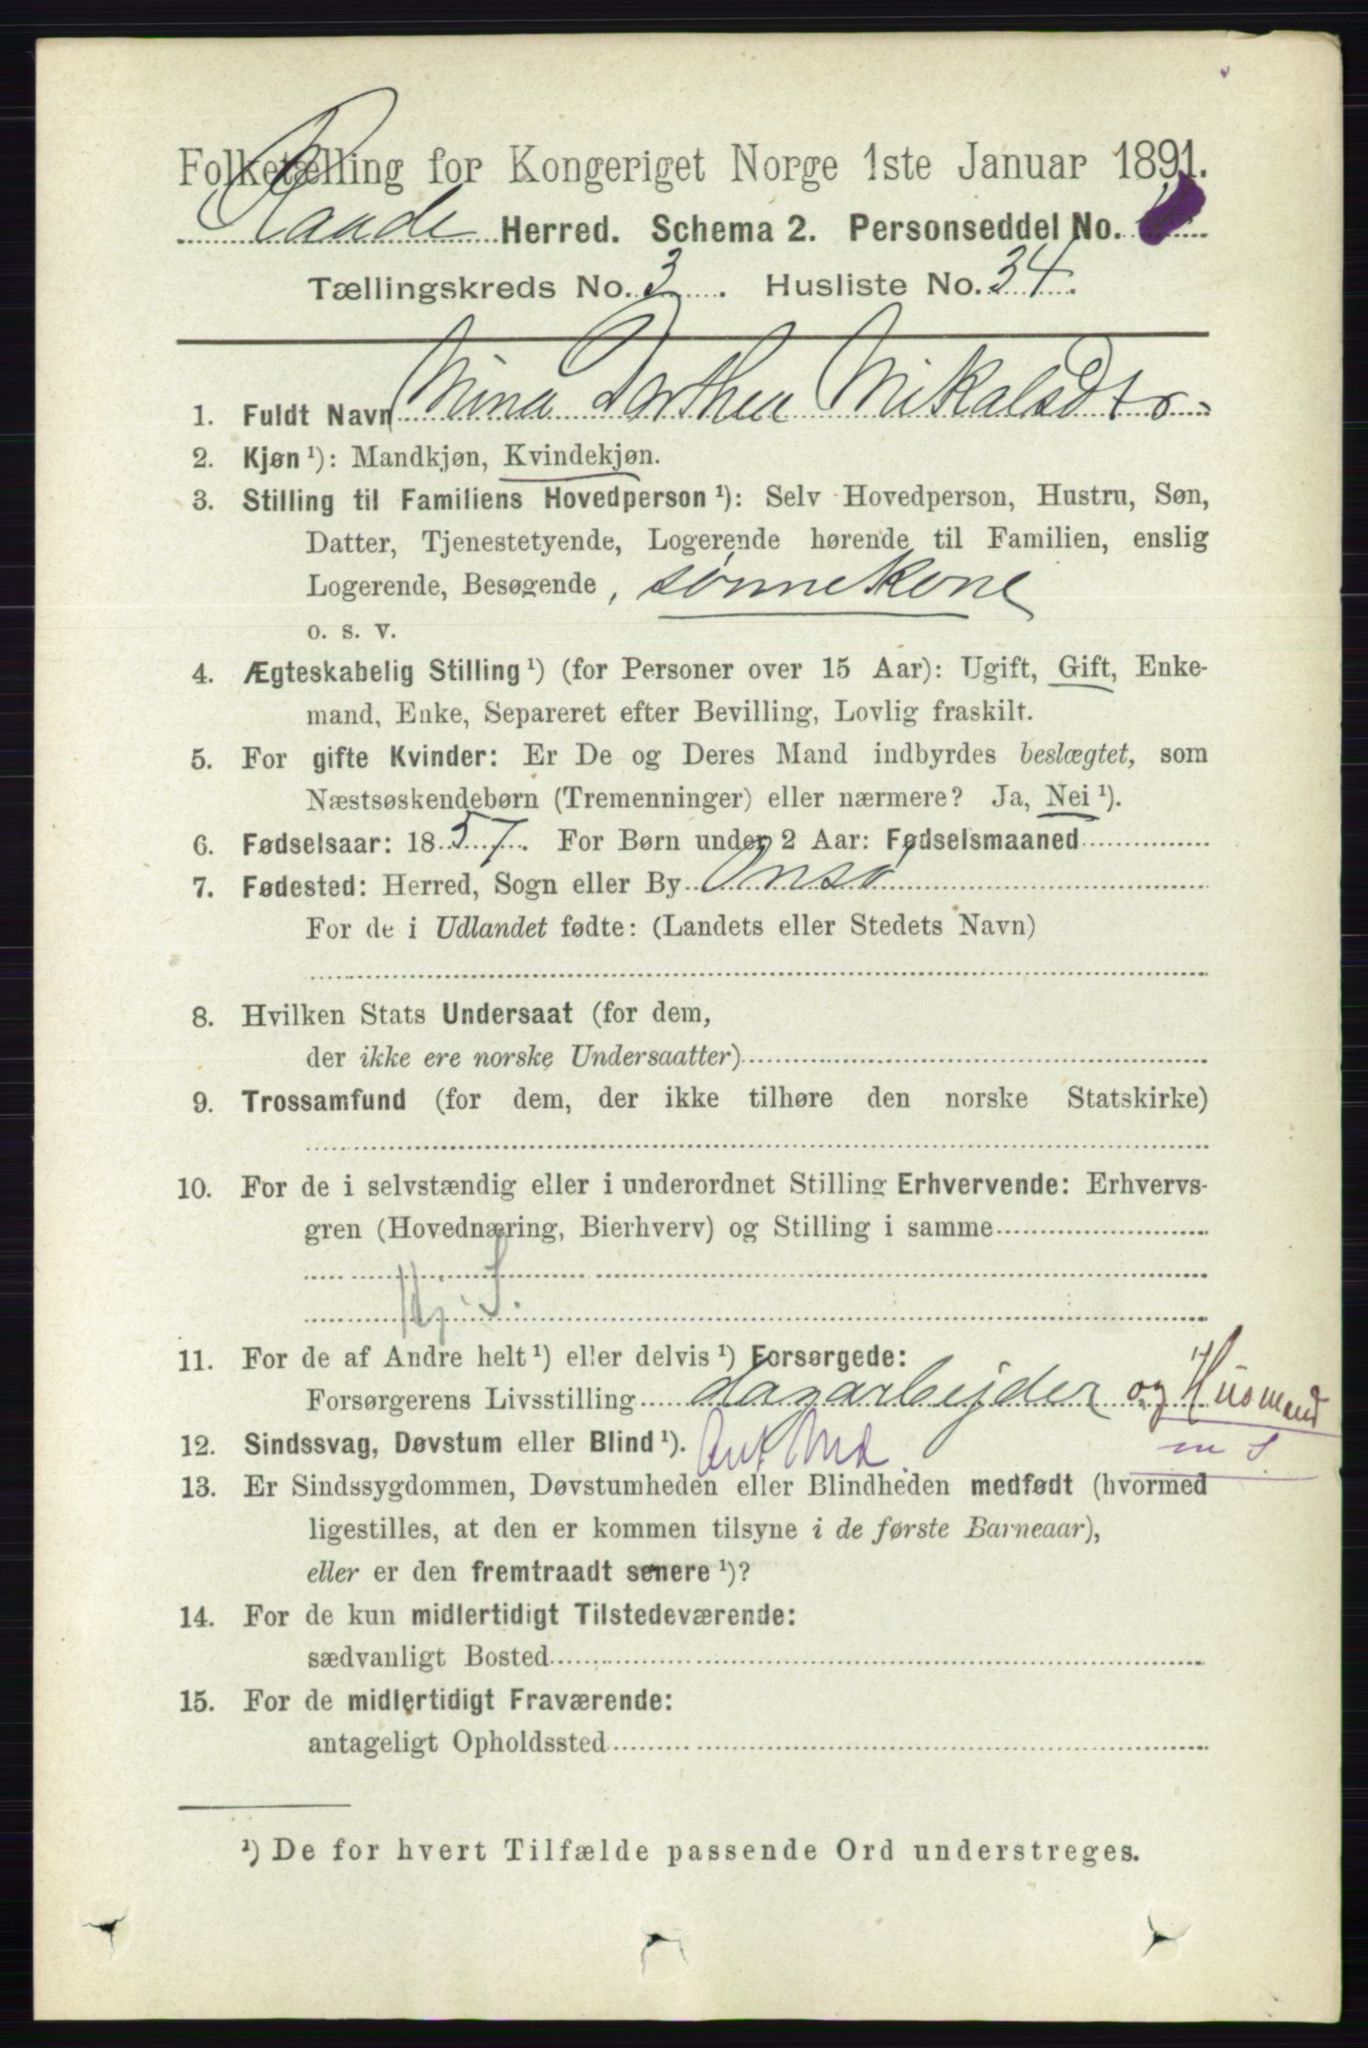 Folketælling for Kongeriget Norge 1ste Januar 1891.
Raade Herred. Schema 2. Personseddel No.
Tællingskreds No. 3. Husliste No. 34.
1. Fuldt Navn Nina Dorthea Mikalsdtr
2. Kjøn¹): Mandkjøn, Kvindekjøn.
3. Stilling til Familiens Hovedperson¹): Selv Hovedperson, Hustru, Søn,
Datter, Tjenestetyende, Logerende hørende til Familien, enslig
Logerende, Besøgende, sønnekone
o. s. v.
4. Ægteskabelig Stilling¹) (for Personer over 15 Aar): Ugift, Gift, Enke-
mand, Enke, Separeret efter Bevilling, Lovlig fraskilt.
5. For gifte Kvinder: Er De og Deres Mand indbyrdes beslægtet, som
Næstsøskendebørn (Tremenninger) eller nærmere? Ja, Nei¹).
6. Fødselsaar: 1857. For Børn under 2 Aar: Fødselsmaaned
7. Fødested: Herred, Sogn eller By Onsø
For de i Udlandet fødte: (Landets eller Stedets Navn)
8. Hvilken Stats Undersaat (for dem,
der ikke ere norske Undersaatter)
9. Trossamfund (for dem, der ikke tilhøre den norske Statskirke)
10. For de i selvstændig eller i underordnet Stilling Erhvervende: Erhvervs-
gren (Hovednæring, Bierhverv) og Stilling i samme
11. For de af Andre helt¹) eller delvis¹) Forsørgede:
Forsørgerens Livsstilling dagarbejder og Husmand
m S
12. Sindssvag, Døvstum eller Blind¹).
13. Er Sindssygdommen, Døvstumheden eller Blindheden medfødt (hvormed
ligestilles, at den er kommen tilsyne i de første Barneaar),
eller er den fremtraadt senere¹)?
14. For de kun midlertidigt Tilstedeværende:
sædvanligt Bosted
15. For de midlertidigt Fraværende:
antageligt Opholdssted
¹) De for hvert Tilfælde passende Ord understreges.